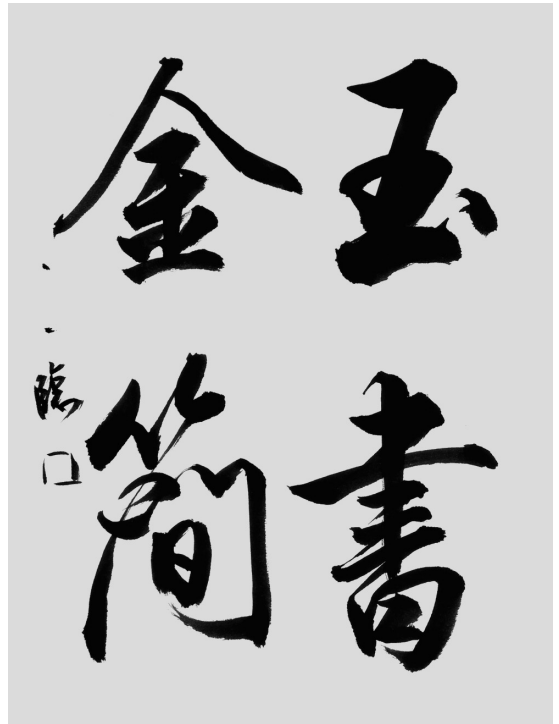 玉書
金簡
臨